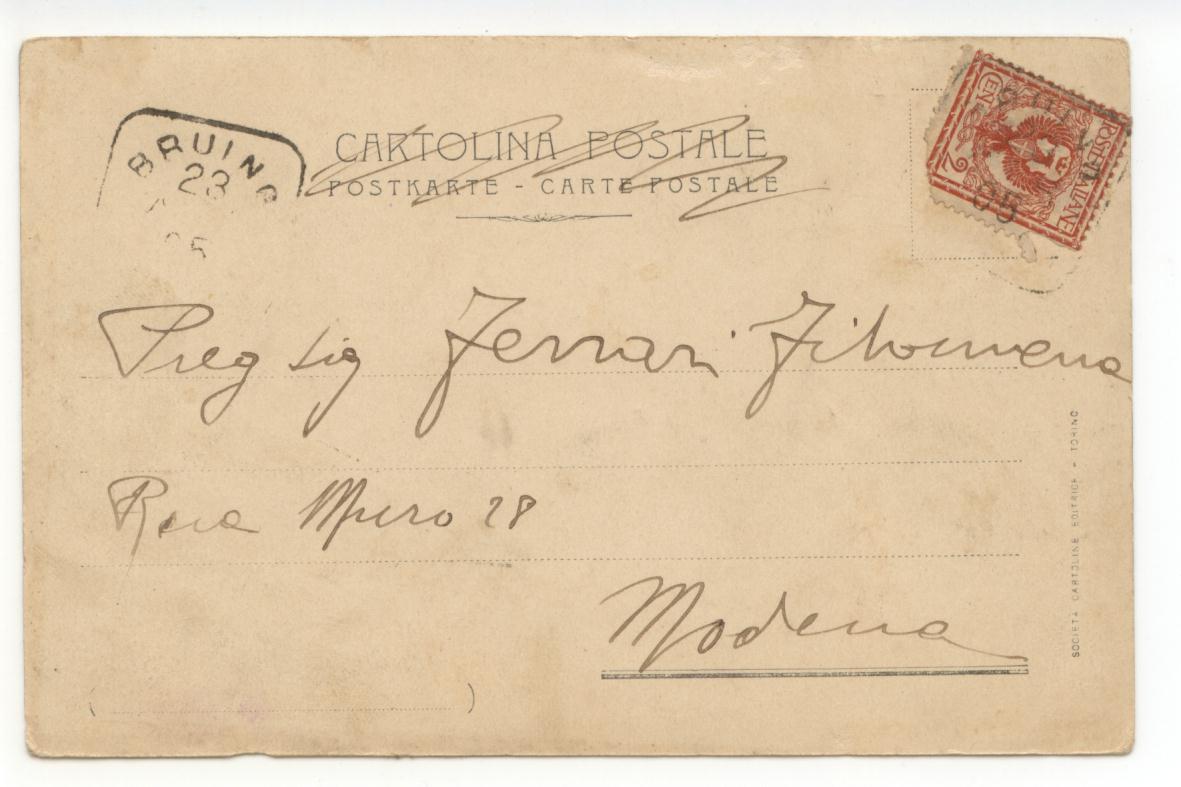 BRUINO
23
05
CARTOLINA POSTALE
POSTKARTE - CARTE POSTALE
POSTE ITALIANE
CENT 2
05
Preg sig Ferrari Filomena
Rua Muro 28
Modena
SOCIETÀ CARTOLINE EDITRICE - TORINO